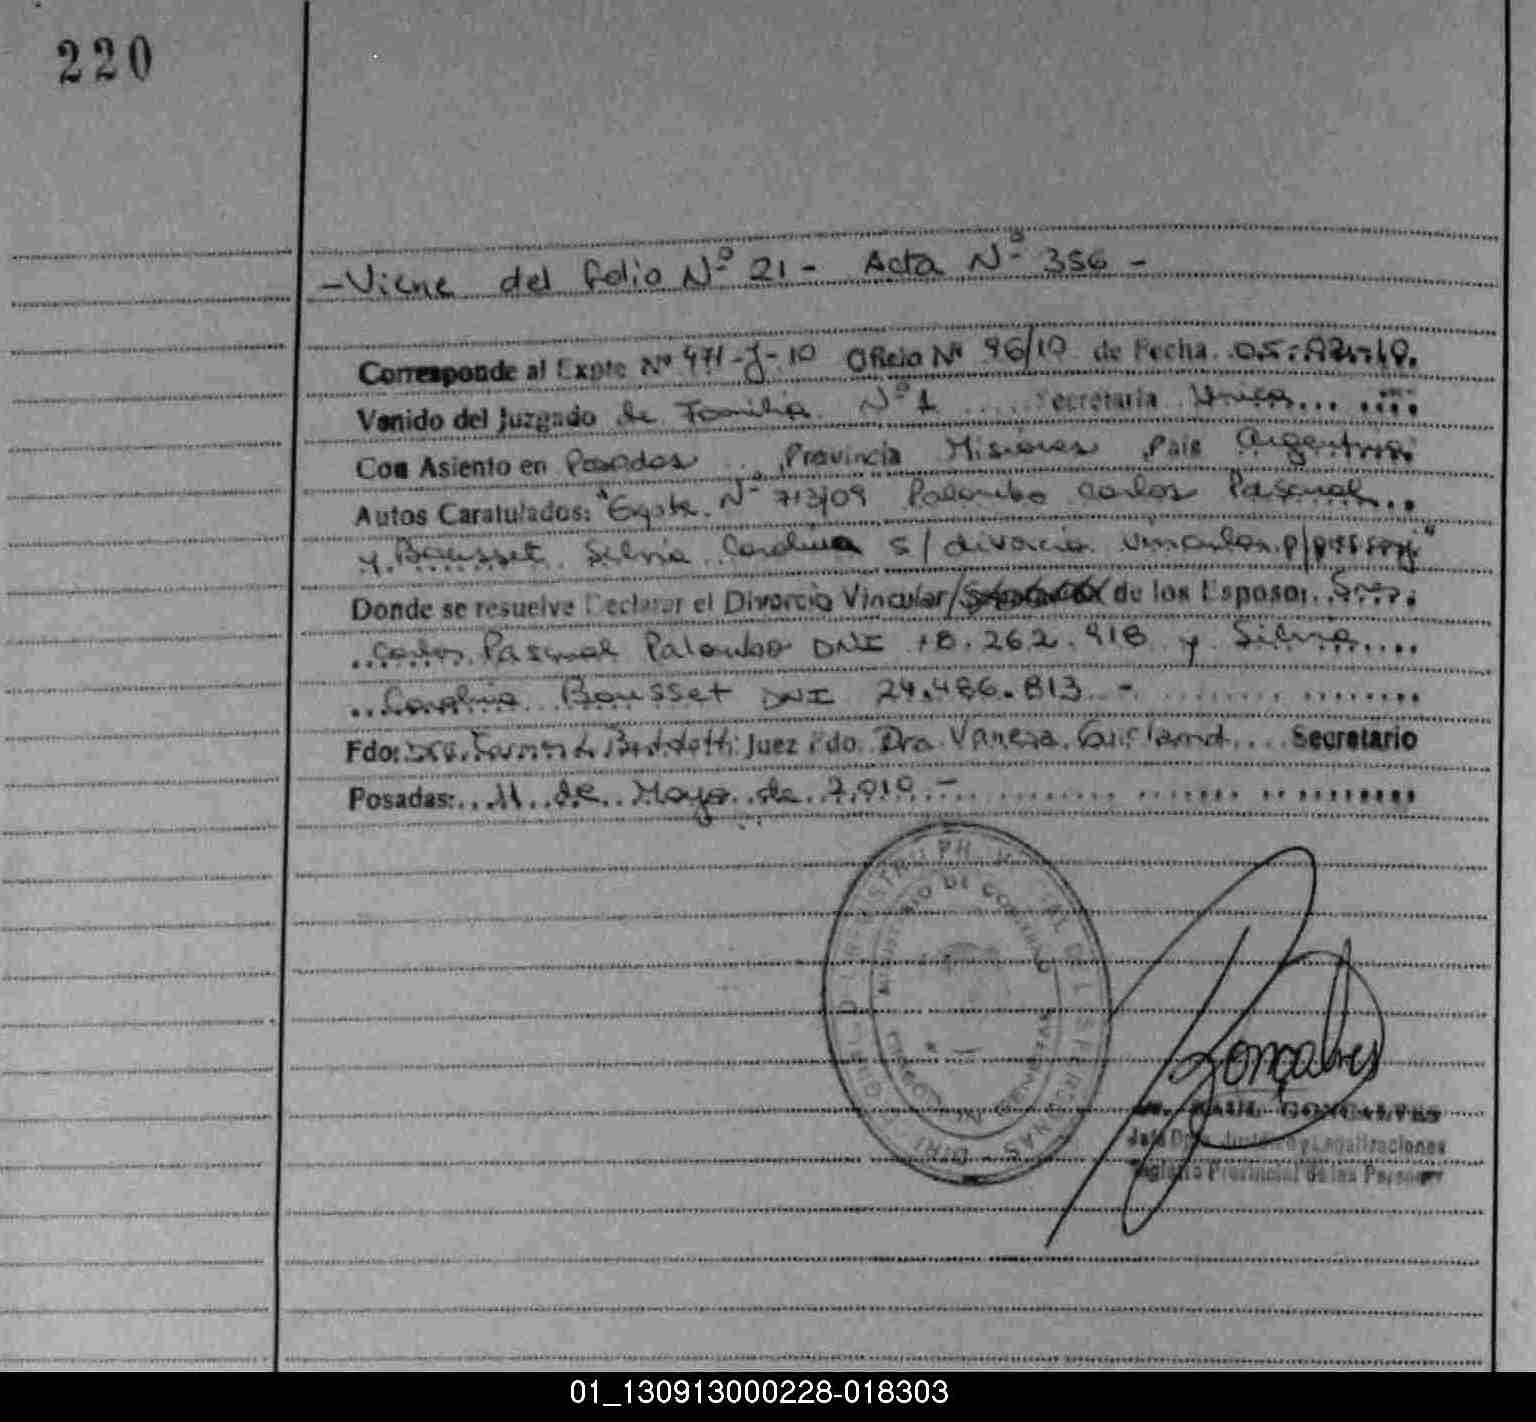 220
- Viene del folio Nº 21 - Acta Nº 356 -
Corresponde al Expte Nº 471-J-10 Oficio Nº 96/10 de Fecha 05
Venido del Juzgado de Familia Nº 1 Secretaria Unica
Con Asiento en Posadas Provincia Misiones Pais Argentina
Autos Caratulados: "Expte. Nº 713/09 Palombo Carlos Pascual
y Bousset Silvia Carolina s/ divorcio vincular p/
Donde se resuelve Declarar el Divorcio Vincular/ de los Esposos Sres.
Carlos Pascual Palombo DNI 18.262.918 y Silvia
Carolina Bousset DNI 24.486.813 -
Fdo: Dra. Juez Fdo. Dra. Vanesa Secretario
Posadas: 11 de Mayo de 2.010 -
MINISTERIO DE GOBIERNO
Gonçalves
RAUL GONCALVES
Jefe Dpto. Jurídico y Legalizaciones
Registro Provincial de las Personas
01_130913000228-018303